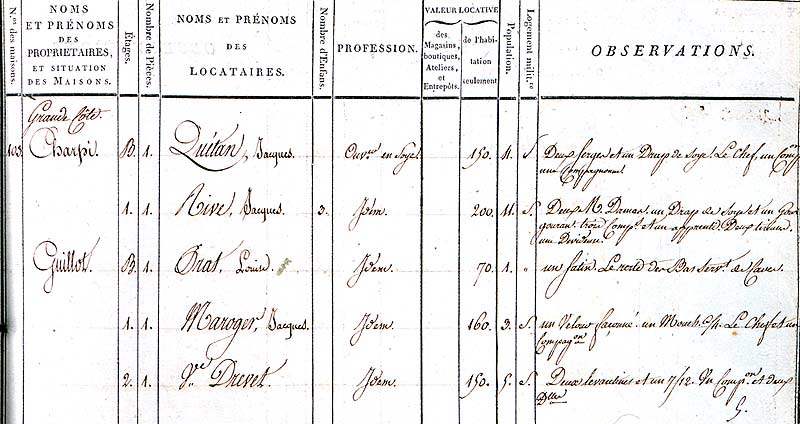 N.os des maisons.
NOMS
ET PRÉNOMS
DES
PROPRIETAIRES,
ET SITUATION
DES MAISONS.
Étages.
Nombre de Pièces.
NOMS ET PRÉNOMS
DES
LOCATAIRES.
Nombre d'Enfans.
PROFESSION.
VALEUR LOCATIVE
des
Magasins,
boutiques,
Ateliers,
et
Entrepôts.
de l'habi-
tation
seulement
Population.
Logement milit.re
OBSERVATIONS.
Grande Côte.
108. Charpi. B. 1. Quétan, Jacques. Ouv. en Soye. 150. 4. S. Deux serges et un Drap de Soye. Le Chef, un
une Compagnone
1. 1. Rive, Jacques. 3. Idem. 200. 11. S. Deux M. Damas. un Drap de Soye et un Gour
gouran. trois Comp. et un apprenti. Deux
une Devideuse.
Guillot. B. 1. Orat, Louise. Idem. 70. 1. " un Satin. Le des Bas
1. 1. Maroger, Jacques. Idem. 160. 3. S. un Velour façonné. un Mouch. 6/4. Le Chef et un
Compagon
2. 1. Ve Drevet. Idem. 150. 5. S. Deux levantines et un 7/12. Un Compon. et deux
Dlles